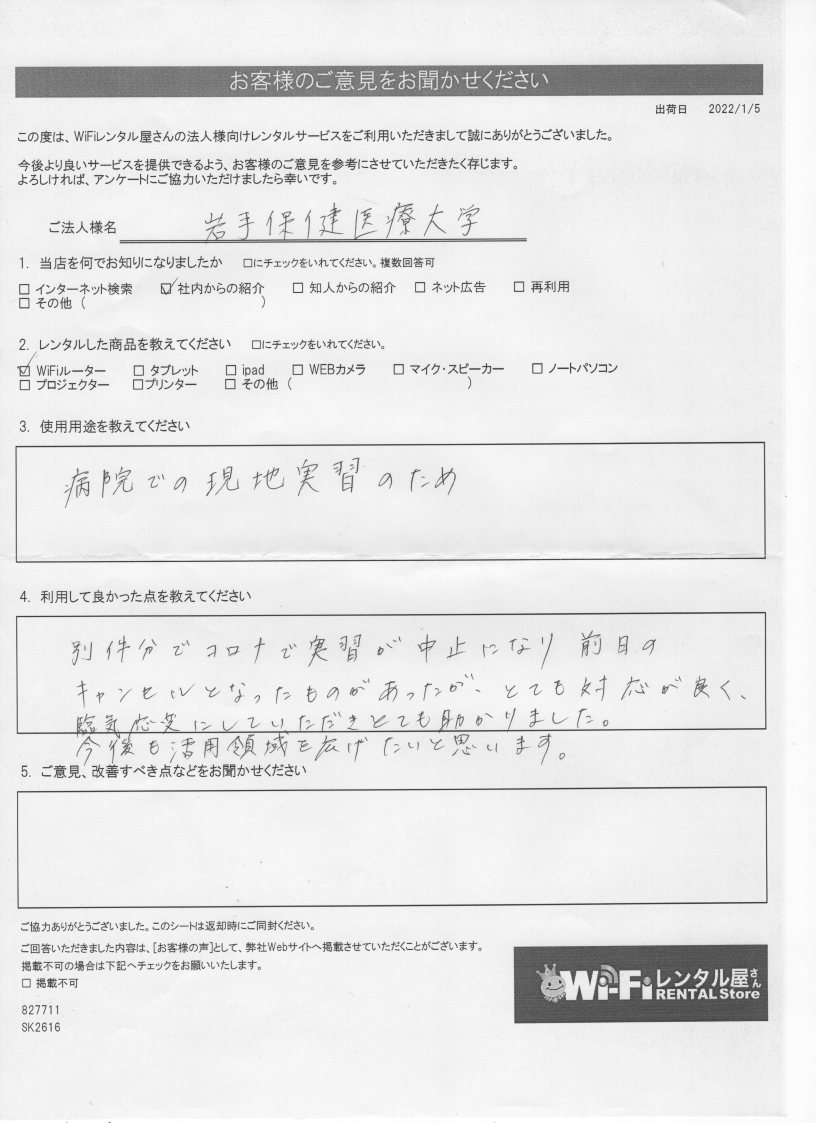 お客様のご意見をお聞かせください
出荷日 2022/1/5
この度は、WiFiレンタル屋さんの法人様向けレンタルサービスをご利用いただきまして誠にありがとうございました。
今後より良いサービスを提供できるよう、お客様のご意見を参考にさせていただきたく存じます。
よろしければ、アンケートにご協力いただけましたら幸いです。
ご法人様名 岩手保健医療大学
1. 当店を何でお知りになりましたか □にチェックをいれてください。複数回答可
□ インターネット検索 ☑ 社内からの紹介 □ 知人からの紹介 □ ネット広告 □ 再利用
□ その他 ( )
2. レンタルした商品を教えてください □にチェックをいれてください。
☑ WiFiルーター □ タブレット □ ipad □ WEBカメラ □ マイク・スピーカー □ ノートパソコン
□ プロジェクター □プリンター □ その他 ( )
3. 使用用途を教えてください
病院での現地実習のため
4. 利用して良かった点を教えてください
別件分でコロナで実習が中止になり前日の
キャンセルとなったものがあったが、とても対応が良く、
臨気応変にしていただきとても助かりました。
今後も活用領域を広げたいと思います。
5. ご意見、改善すべき点などをお聞かせください
ご協力ありがとうございました。このシートは返却時にご同封ください。
ご回答いただきました内容は、[お客様の声]として、弊社Webサイトへ掲載させていただくことがございます。
掲載不可の場合は下記へチェックをお願いいたします。
□ 掲載不可
827711
SK2616
Wi-Fiレンタル屋さん
RENTAL Store